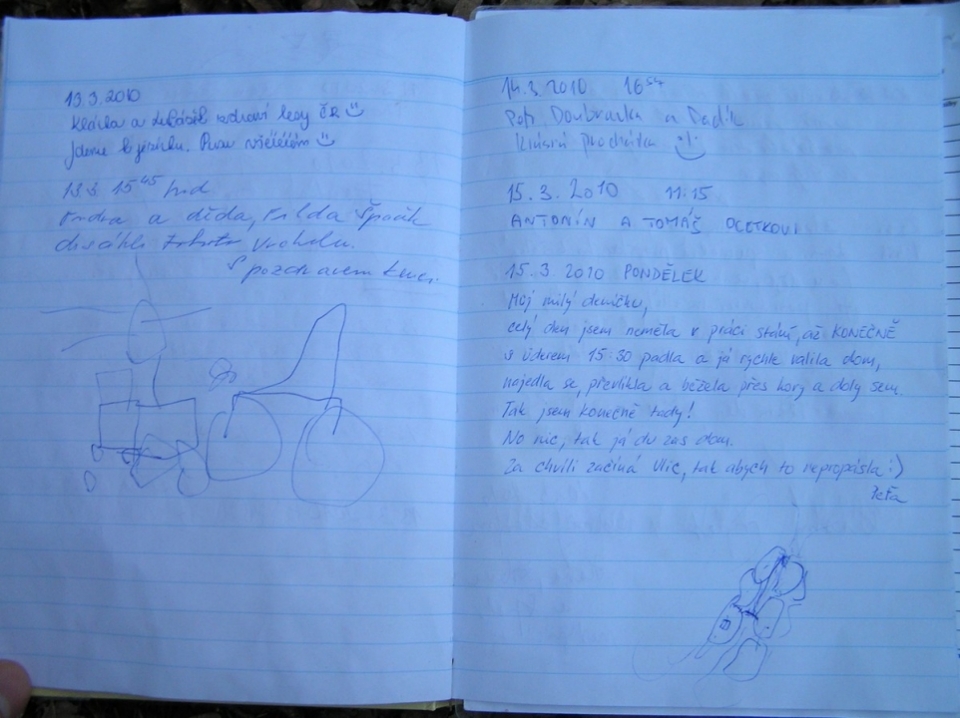 13.3.2010
Klárka a zdraví lesy ČR
Jdeme k jezírku.
13.3. 15 45 hod
a děda,
vrcholu.
S pozdravem
14.3.2010 16 54
Petr Doubravka a Dadik
Krásná procházka
15.3.2010 11:15
ANTONÍN A TOMÁŠ OCETKOVI
15.3 2010 PONDĚLEK
Můj milý deníčku,
celý den jsem neměla v práci stání, až KONEČNĚ
s úderem 15:30 padla a já rychle valila dom,
najedla se, převlíkla a běžela přes hory a doly sem.
Tak jsem konečně tady!
No nic, tak já du zas dom.
Za chvíli začíná Ulic, tak abych to nepropásla :)
Peťa